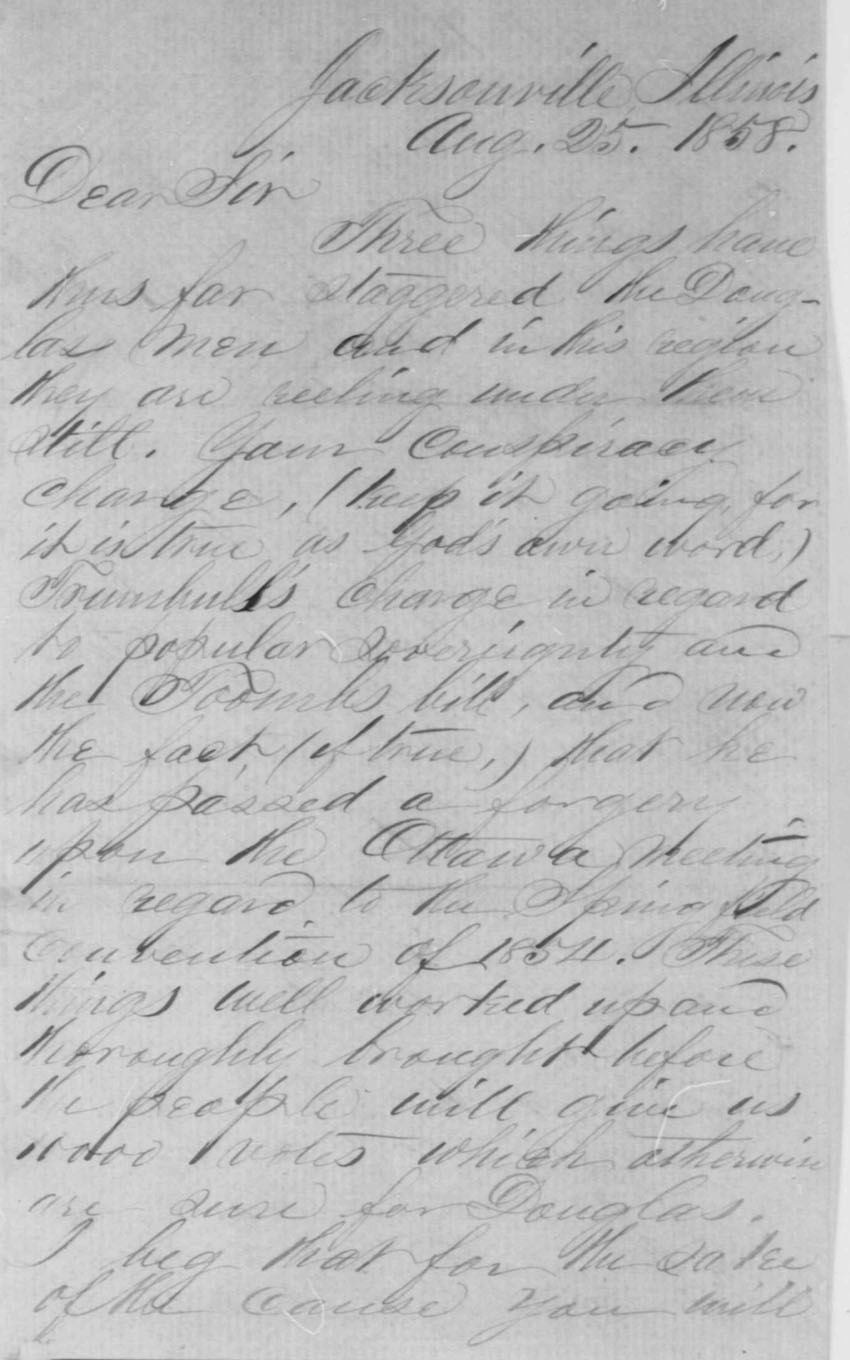 Jacksonville Illinois
Aug. 25. 1858.
Dear Sir
Three things have
thus far staggered the Doug-
las men and in this region
they are reeling under them
still. Your conspiracy
charge, (keep it going, for
it is true as God's own word,)
Trumbull's charge in regard
to popular sovereignty and
the Toombs bill, and now
the fact, (if true,) that he
has passed a forgery
upon the Ottawa meeting
in regard to the Springfield
convention of 1854. These
things well worked up and
thoroughly brought before
the people will give us
votes which otherwise
are sure for Douglas.
I beg that for the sake
of the cause you will